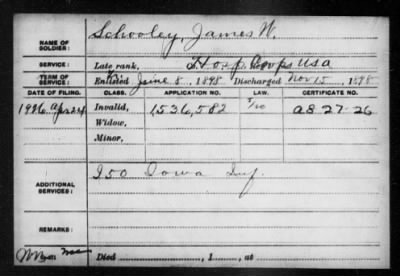 NAME OF SOLDIER: Schooley, James W.
SERVICE: Late rank, Hosp Corps USA
TERM OF SERVICE: Enlisted June 8, 1898 Discharged Nov 15, 1898
DATE OF FILING. CLASS. APPLICATION NO. LAW. CERTIFICATE NO.
1926 Apr 24 Invalid, 1536,582 A8-27-26
Widow,
Minor,
ADDITIONAL SERVICES: I 50 Iowa Inf
REMARKS:
Died , 1 , at